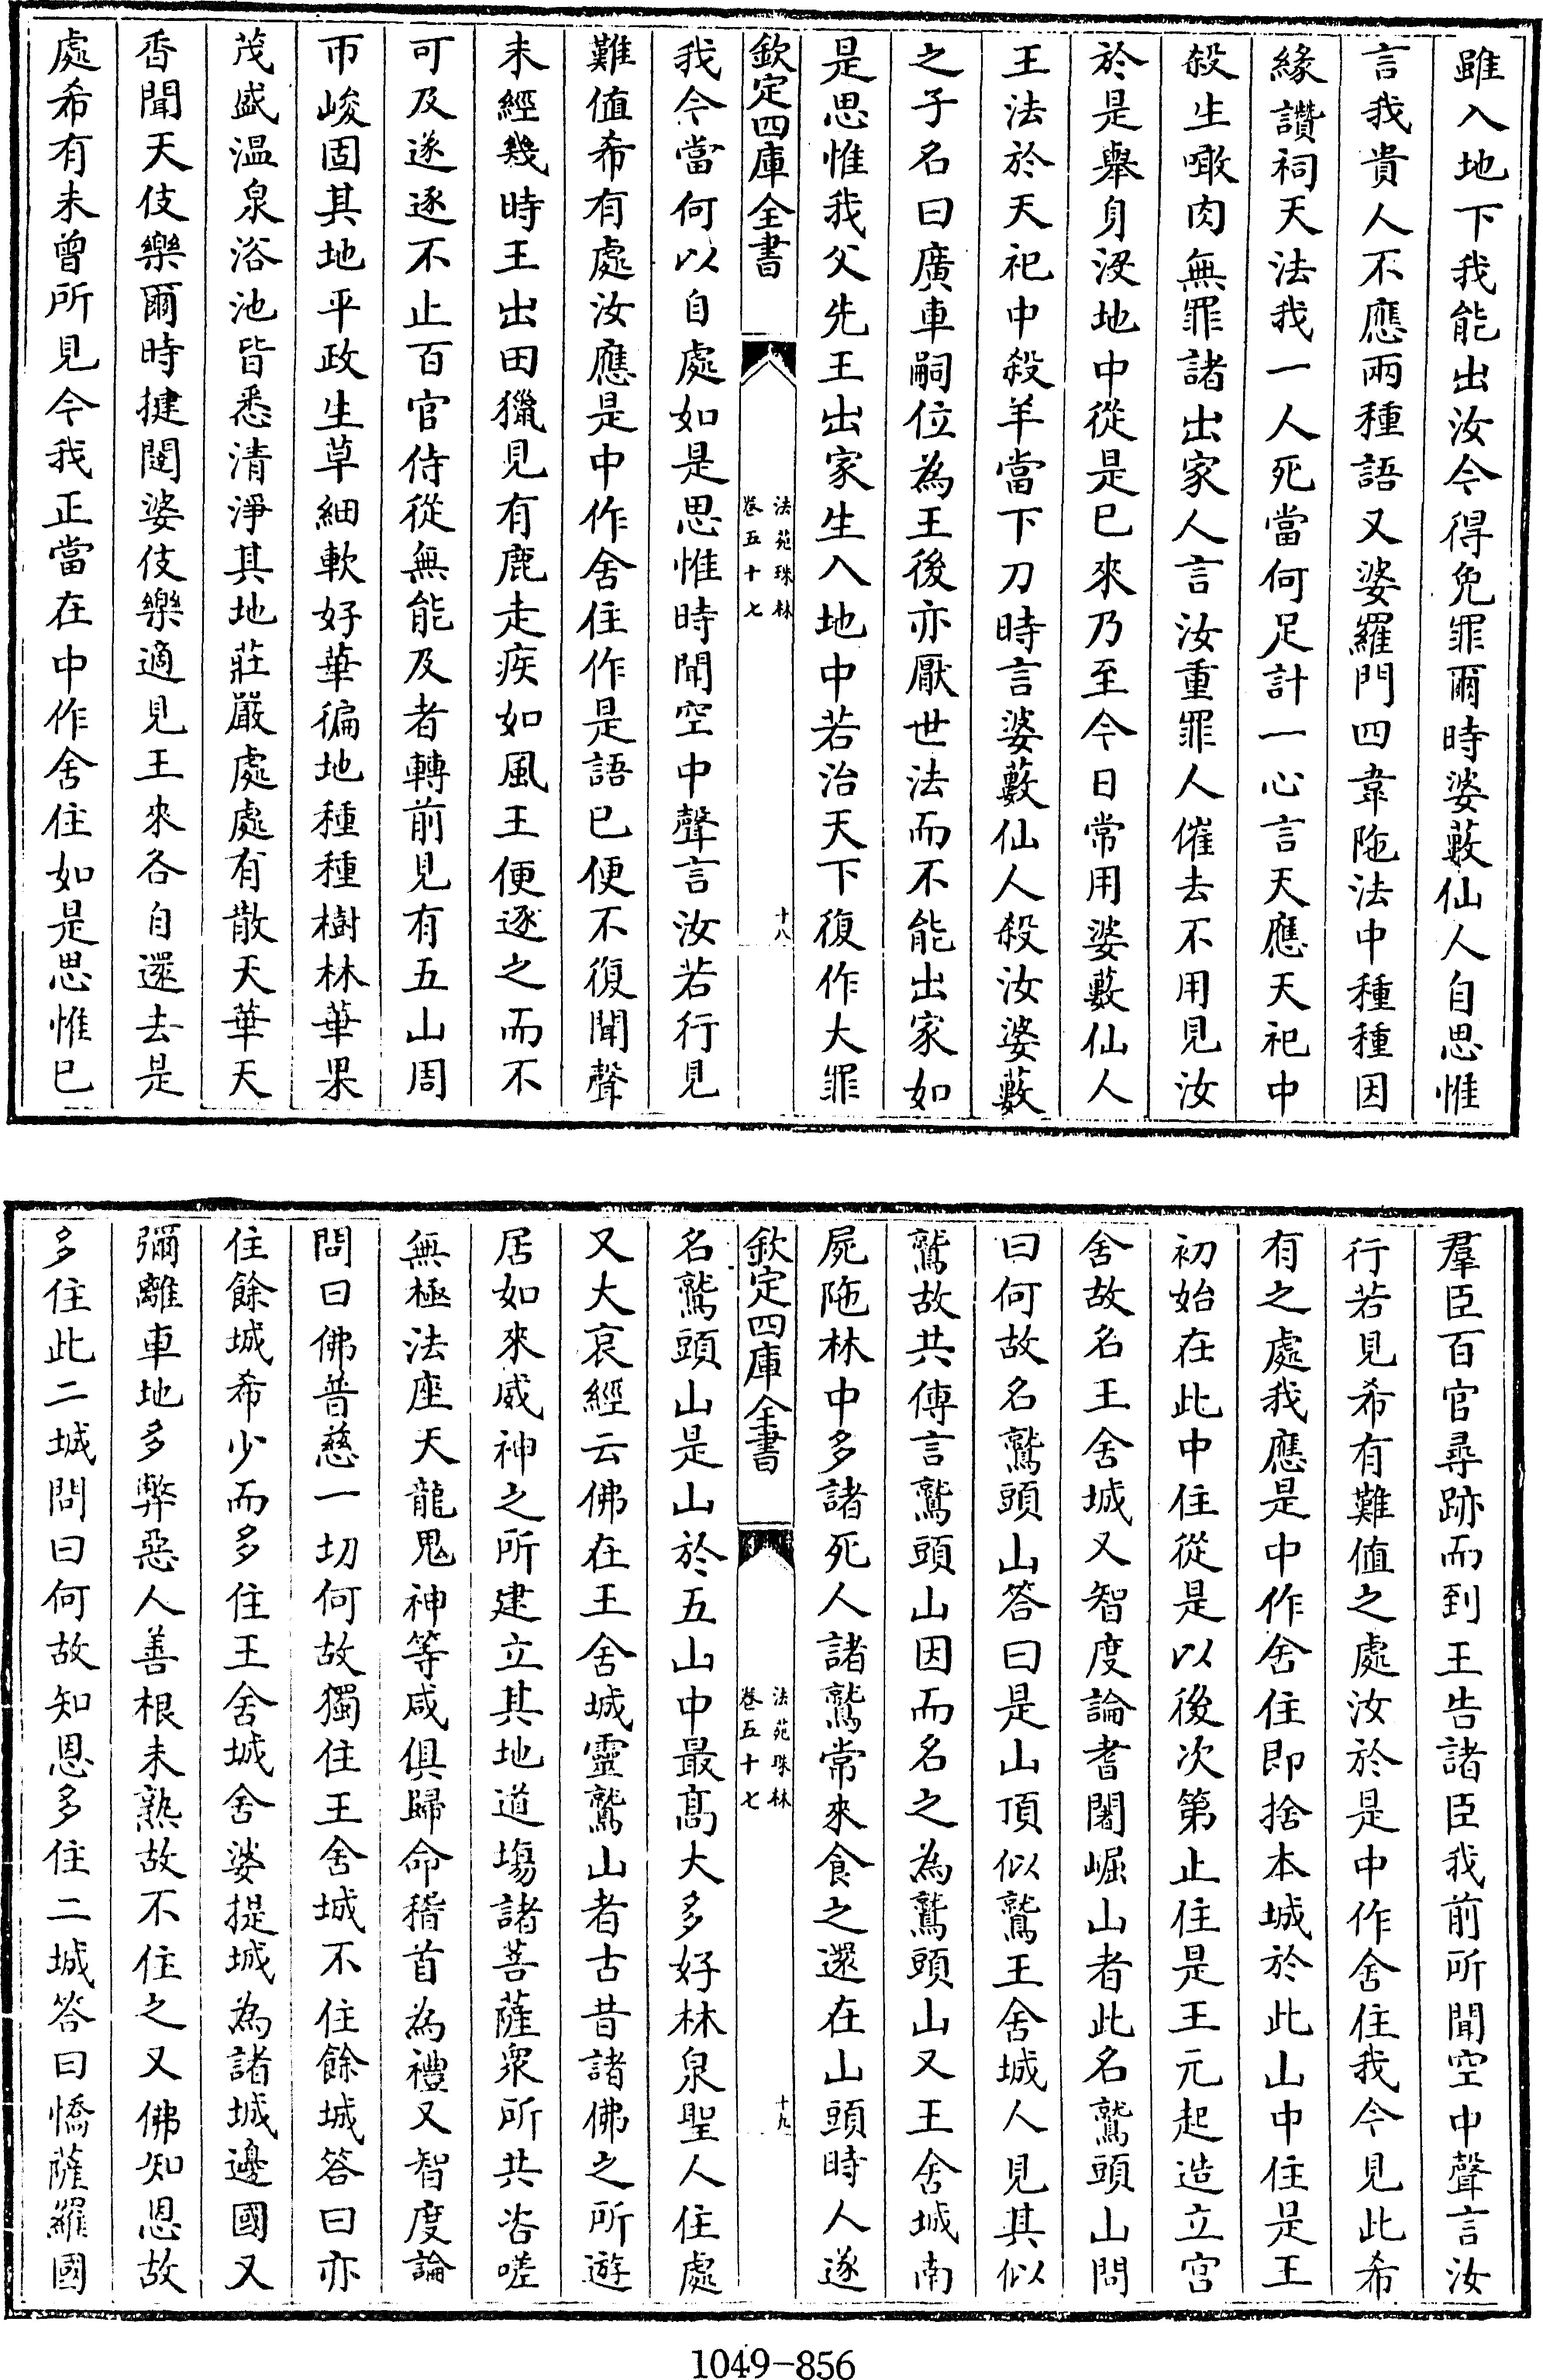 雖入地下我能出汝今得免罪爾時婆藪仙人自思惟
言我貴人不應兩種語又婆羅門四韋陁法中種種因
緣讚祠天法我一人死當何足計一心言天應天祀中
殺生噉肉無罪諸出家人言汝重罪人催去不用見汝
於是舉身沒地中從是已來乃至今日常用婆藪仙人
王法於天祀中殺羊當下刀時言婆藪仙人殺汝婆藪
之子名曰廣車嗣位為王後亦厭世法而不能出家如
是思惟我父先王出家生入地中若治天下復作大罪
欽定四庫全書
法苑珠林
卷五十七
十八
我今當何以自處如是思惟時聞空中聲言汝若行見
難值希有處汝應是中作舍住作是語已便不復聞聲
未經幾時王出田獵見有鹿走疾如風王便逐之而不
可及遂逐不止百官侍從無能及者轉前見有五山周
帀峻固其地平政生草細軟好華徧地種種樹林華果
茂盛温泉浴池皆悉清淨其地莊嚴處處有散天華天
香聞天伎樂爾時揵闥婆伎樂適見王來各自還去是
處希有未曾所見今我正當在中作舍住如是思惟已
羣臣百官尋跡而到王告諸臣我前所聞空中聲言汝
行若見希有難值之處汝於是中作舍住我今見此希
有之處我應是中作舍住即捨本城於此山中住是王
初始在此中住從是以後次第止住是王元起造立宫
舍故名王舍城又智度論耆闍崛山者此名鷲頭山問
曰何故名鷲頭山答曰是山頂似鷲王舍城人見其似
鷲故共傳言鷲頭山因而名之為鷲頭山又王舍城南
屍陁林中多諸死人諸鷲常來食之還在山頭時人遂
欽定四庫全書
法苑珠林
卷五十七
十九
名鷲頭山是山於五山中最髙大多好林泉聖人住處
又大哀經云佛在王舍城靈鷲山者古昔諸佛之所遊
居如來威神之所建立其地道塲諸菩薩衆所共咨嗟
無極法座天龍鬼神等咸俱歸命稽首為禮又智度論
問曰佛普慈一切何故獨住王舍城不住餘城答曰亦
住餘城希少而多住王舍城舍婆提城為諸城邊國又
彌離車地多弊惡人善根未熟故不住之又佛知恩故
多住此二城問曰何故知恩多住二城答曰憍薩羅國
1049-856